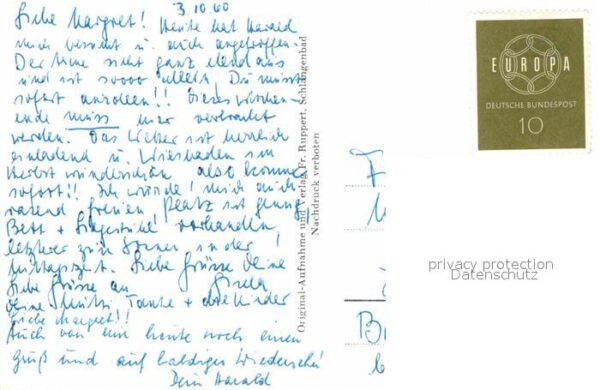 3.10.60
Liebe Margret! Heute hat Harald
mich besucht u. mich angetroffen.
Der Arme sieht ganz elend aus
und ist soooo allein. Du musst
sofort anrollen!! Dieses Wochen-
ende muss hier verbracht
werden. Das Wetter ist herrlich
einladend u. Wiesbaden im
Herbst wunderschön also komme
sofort!! Ich würde mich auch
rasend freuen, Platz ist genug,
Bett + Liegestühle vorhanden,
letztere zum Sonnen in der
Mittagszeit. Liebe Grüsse Deine
Liebe Grüsse an
Deine Mutti Tante + alle Kinder
Liebe Margret!!
Auch von mir heute noch einen
Gruß und auf baldiges Wiedersehn
Dein Harald
Original-Aufnahme und Verlag Fr. Ruppert, Schlangenbad
Nachdruck verboten
EUROPA
DEUTSCHE BUNDESPOST
10
privacy protection
Datenschutz